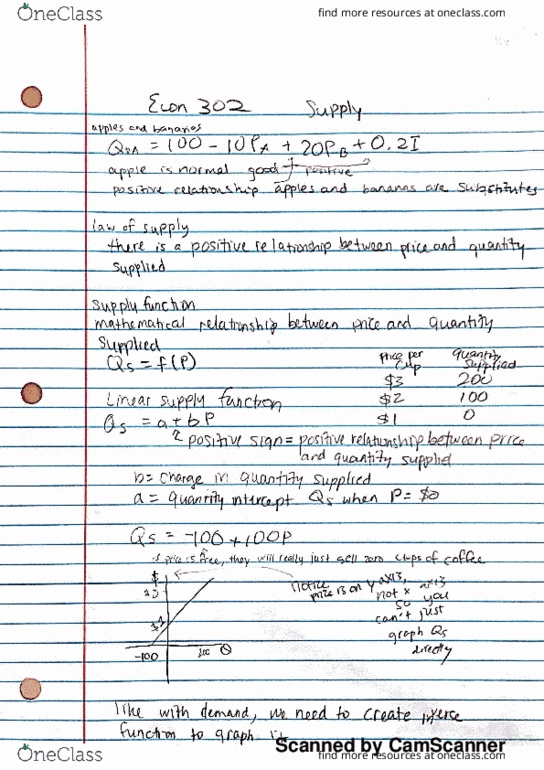 OneClass
find more resources at oneclass.com
Econ 302 Supply
apples and bananas
QDA = 100 - 10PA + 20PB + 0.2I
apple is normal good positive
positive relationship apples and bananas are substitutes
law of supply
there is a positive relationship between price and quantity
supplied
supply function
mathematical relationship between price and quantity
supplied
Qs = f(P)
price per cup quantity supplied
$3 200
$2 100
$1 0
Linear supply function
Qs = a + bP
positive sign = positive relationship between price
and quantity supplied
b = change in quantity supplied
a = quantity intercept Qs when P = $0
Qs = -100 + 100P
if price is free, they will really just sell zero cups of coffee
$
notice
price is on y axis,
not x axis
so you
can't just
graph Qs
directly
-100 Q
like with demand, we need to create inverse
function to graph it
OneClass
Scanned by CamScanner
find more resources at oneclass.com